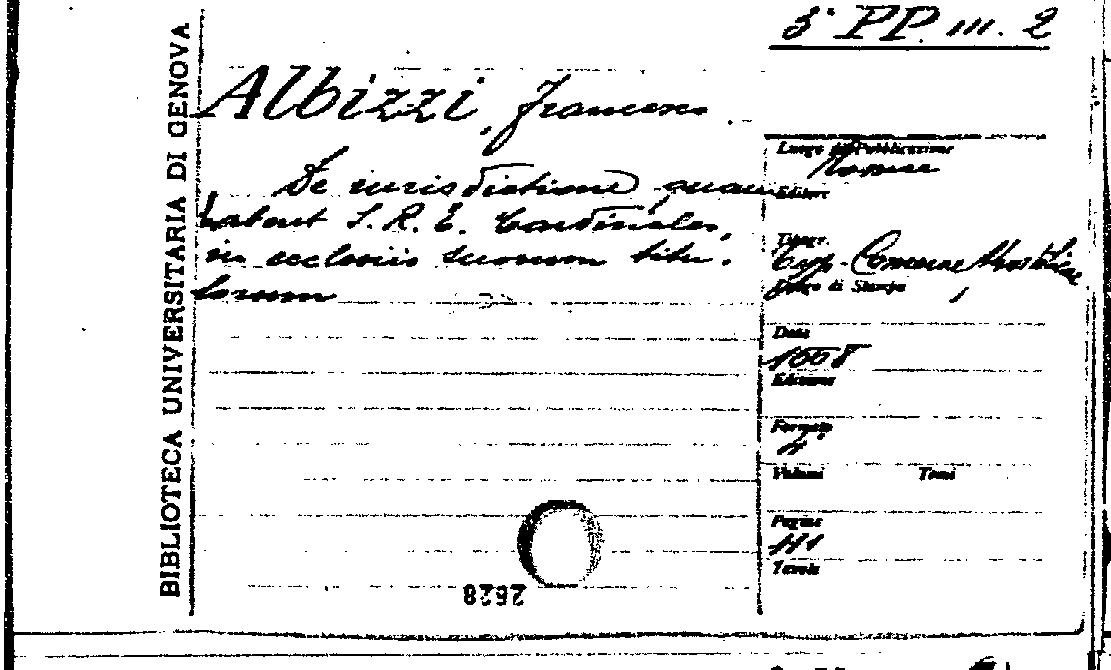 3° PP. III. 2
BIBLIOTECA UNIVERSITARIA DI GENOVA
Albizzi, Francesco
De iurisdictione, quam
habent S. R. E. Cardinales,
in ecclesiis suorum titu-
lorum
Luogo di Pubblicazione
Romae
Editore
Tipogr.
Typ. Camerae Apostolicae
Luogo di Stampa
Data
1668
Edizione
Formato
4°
Volumi Tomi
Pagine
Tavole
2628